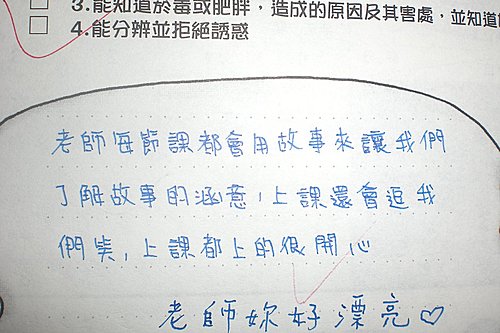 3.能知道菸毒或肥胖，造成的原因及其害處，並知道
4.能分辨並拒絕誘惑
老師每節課都會用故事來讓我們
了解故事的涵意，上課還會逗我
們笑，上課都上的很開心
老師妳好漂亮♡